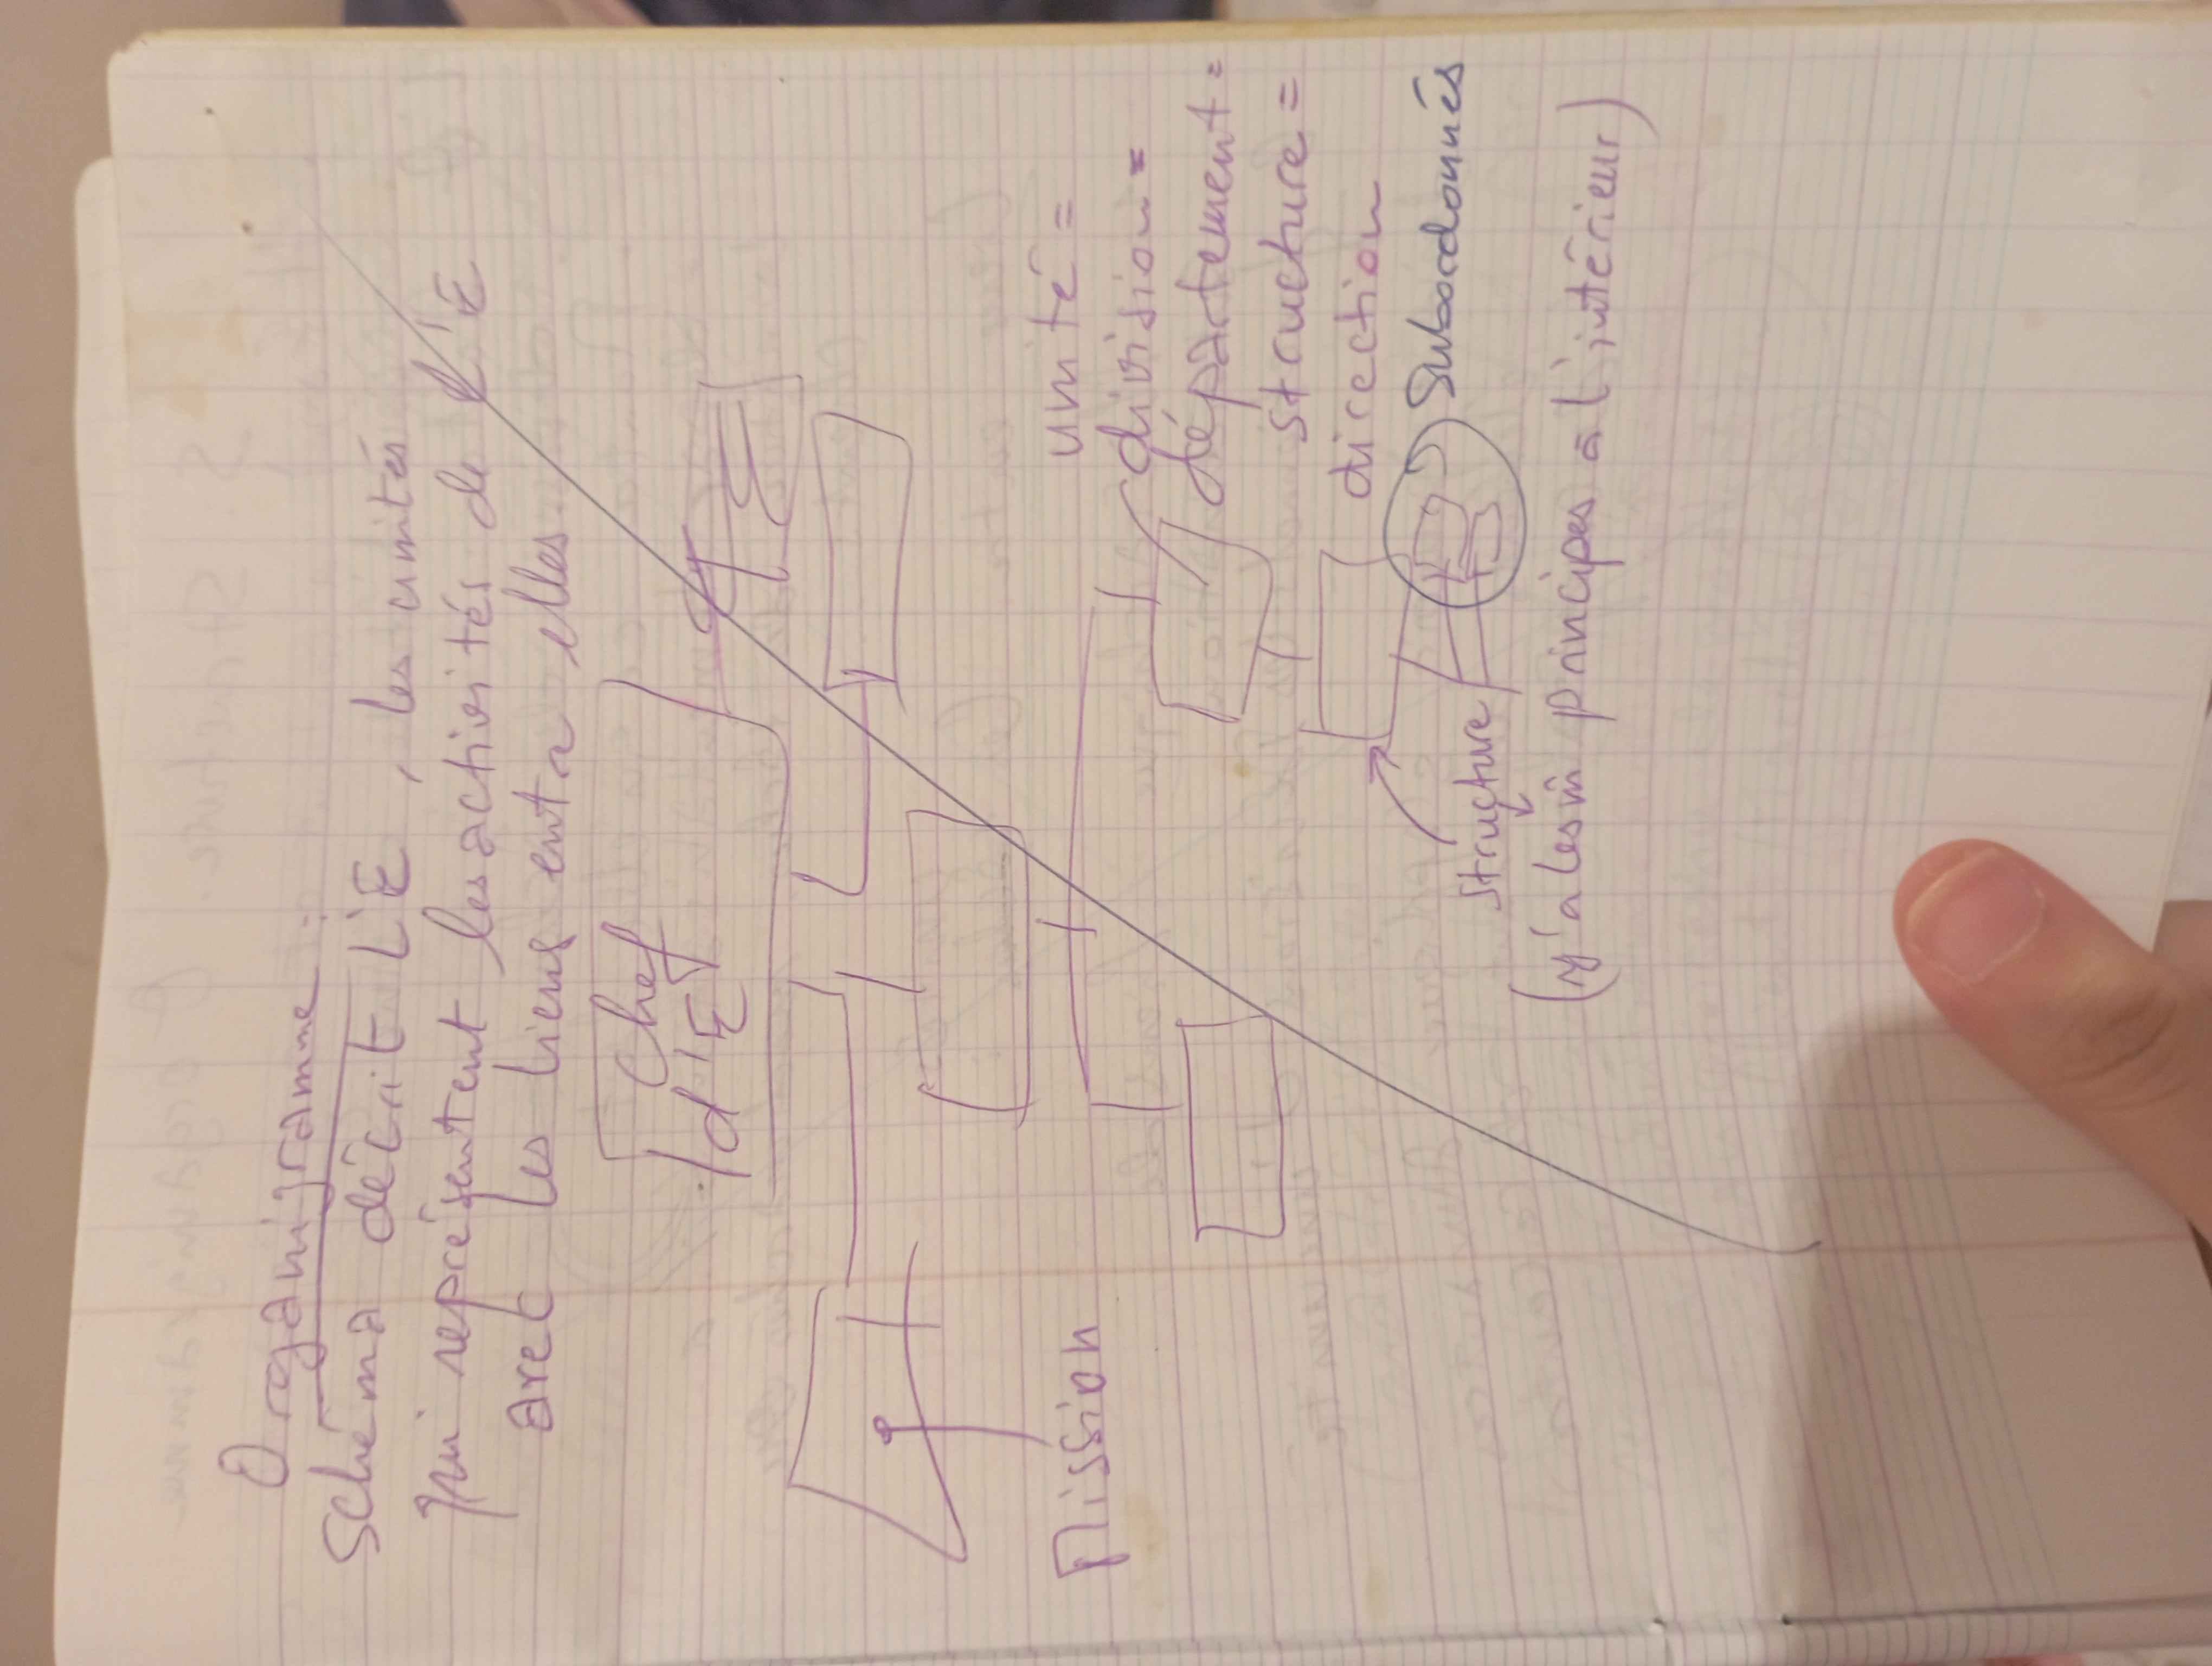 Organigramme :
Schéma décrit L'E, les unités
qui représentent les activités de l'E
avec les liens entre elles.
Chef
d'E
Mission
unité =
division =
département =
structure =
direction
Subordonnés
structure
(y'a les m̂ principes a l'intérieur)